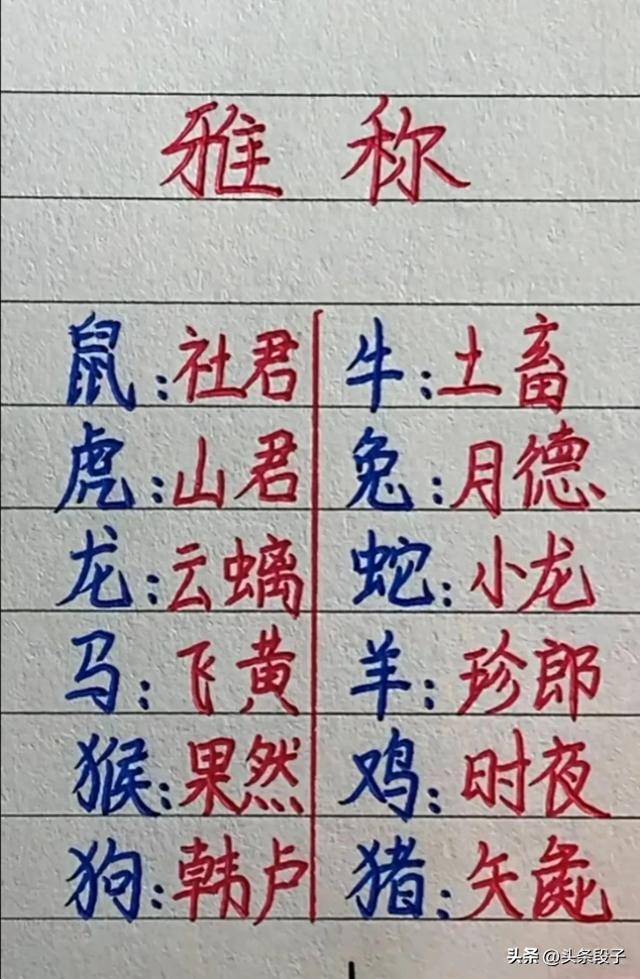 雅称
鼠:社君 牛:土畜
虎:山君 兔:月德
龙:云螭 蛇:小龙
马:飞黄 羊:珍郎
猴:果然 鸡:时夜
狗:韩卢 猪:矢彘
头条 @头条段子